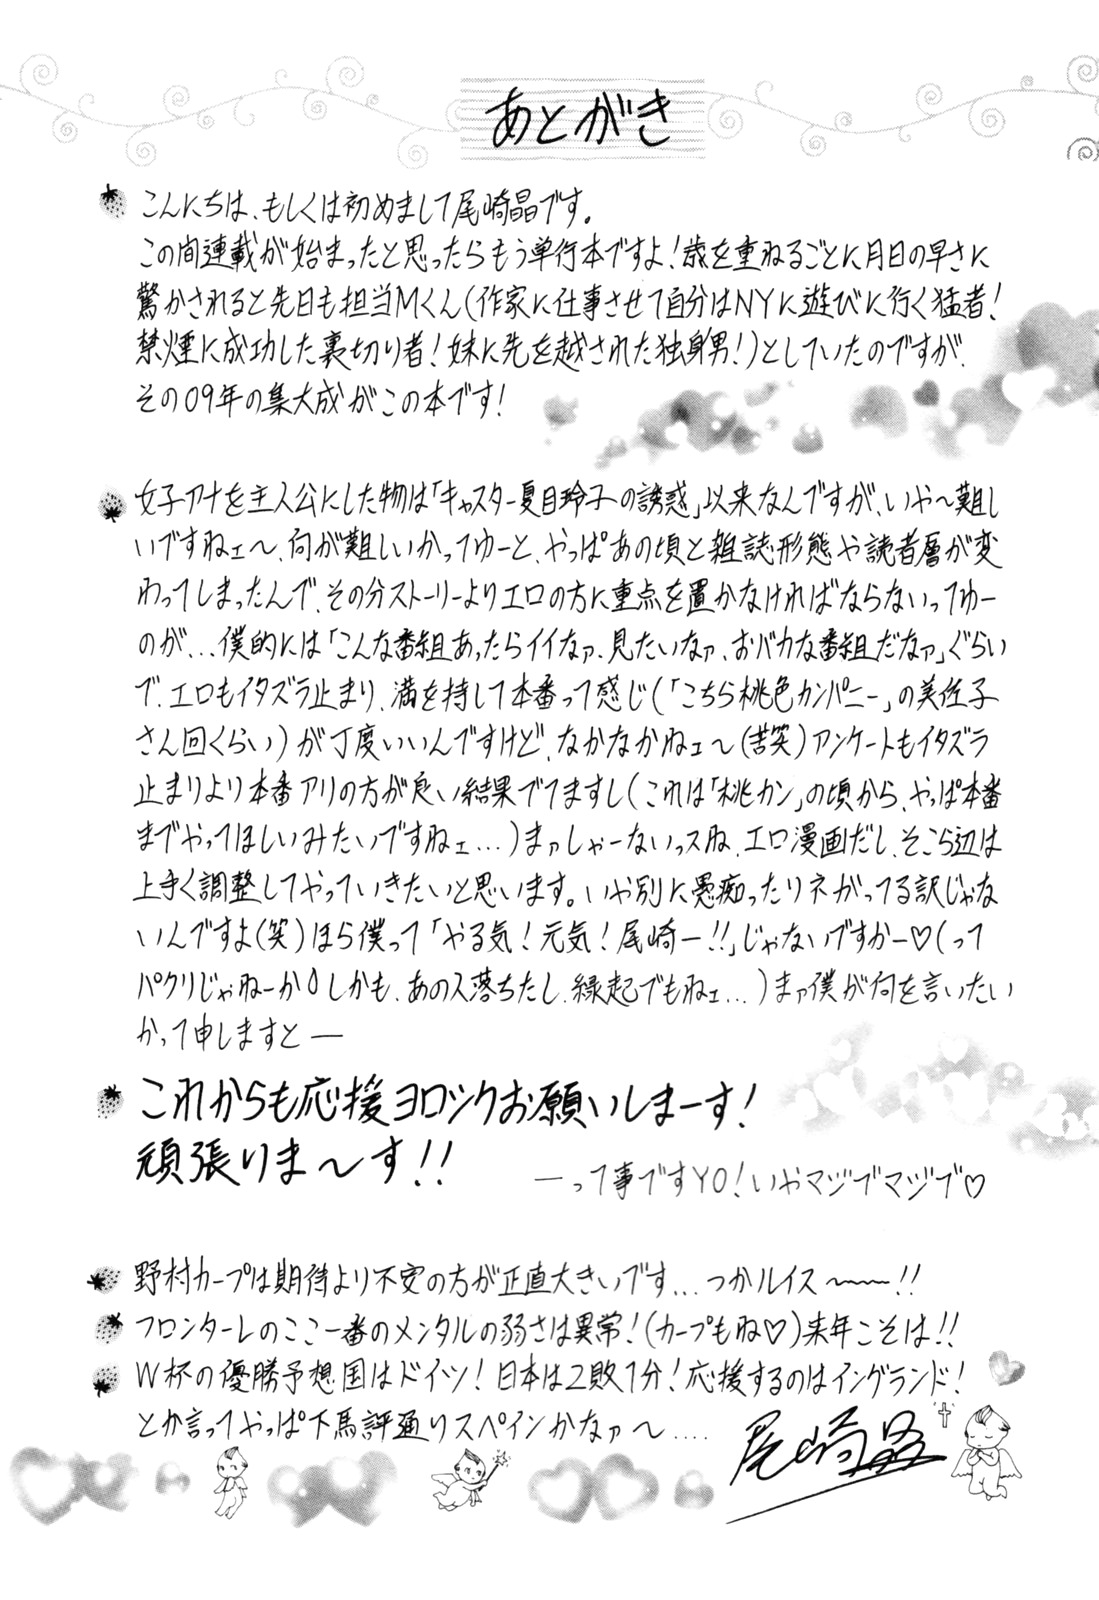 あとがき
こんにちは、もしくは初めまして尾崎晶です。
この間連載が始まったと思ったらもう単行本ですよ!歳を重ねるごとに月日の早さに
驚かされると先日も担当Mくん(作家に仕事させて自分はNYに遊びに行く猛者!
禁煙に成功した裏切り者!妹に先を越された独身男!)としていたのですが、
その09年の集大成がこの本です!
女子アナを主人公にした物は「キャスター夏目玲子の誘惑」以来なんですが、いや〜難し
いですねェ〜、何が難しいかってゆーと、やっぱあの頃と雑誌形態や読者層が変
わってしまったんで、その分ストーリーよりエロの方に重点を置かなければならないってゆー
のが...僕的には「こんな番組あったらイイなァ、見たいなァ、おバカな番組だなァ」ぐらい
で、エロもイタズラ止まり、満を持して本番って感じ(「こちら桃色カンパニー」の美佐子
さん回くらい)が丁度いいんですけど、なかなかねェ〜(苦笑)アンケートもイタズラ
止まりより本番アリの方が良い結果でてますし(これは「桃カン」の頃から、やっぱ本番
までやってほしいみたいですねェ...)まァしゃーないっスね、エロ漫画だし、そこら辺は
上手く調整してやっていきたいと思います。いや別に愚痴ったりネガってる訳じゃな
いんですよ(笑)ほら僕って「やる気!元気!尾崎ー!!」じゃないですかー♡(って
パクリじゃねーか しかも、あの人落ちたし、縁起でもねェ...)まァ僕が何を言いたい
かって申しますと―
これからも応援ヨロシクお願いしまーす!
頑張りま〜す!!
―って事ですYO!いやマジでマジで♡
野村カープは期待より不安の方が正直大きいです...つかルイス〜〜〜!!
フロンターレのここ一番のメンタルの弱さは異常!(カープもね♡)来年こそは!!
W杯の優勝予想国はドイツ!日本は2敗1分!応援するのはイングランド!
とか言ってやっぱ下馬評通りスペインかなァ〜....
尾崎晶